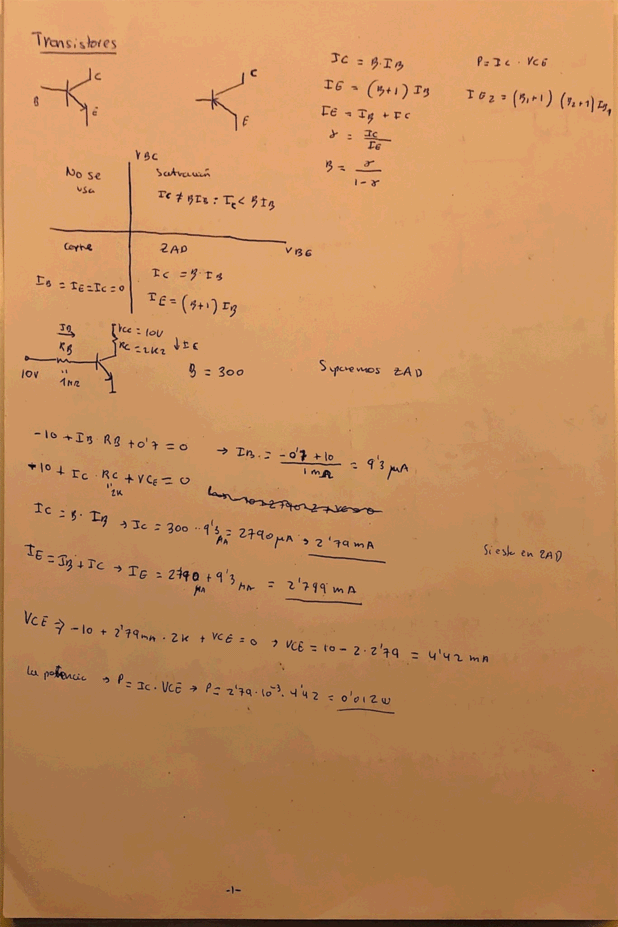 Transistores
C
B
E
C
E
IC = B·IB
IE = (B+1) IB
IE = IB + IC
γ = IC/IE
B = γ/(1-γ)
P = Ic · VCE
IE2 = (B1+1) (B2+1) IB1
VBC
No se
usa
Saturación
IC ≠ BIB : Ic < BIB
VBE
Corte
IB = IE = IC = 0
ZAD
IC = B·IB
IE = (B+1) IB
IB
RB
10V
1MΩ
Vcc = 10V
RC = 2K2
↓IC
B = 300
Suponemos ZAD
-10 + IB·RB + 0'7 = 0 → IB = (-0'7 + 10)/1MΩ = 9'3 μA
-10 + IC · RC + VCE = 0
2K
IC = B· IB → IC = 300 · 9'3 μA = 2790 μA → 2'79 mA
Si esta en ZAD
IE = IB + IC → IE = 2790 μA + 9'3 μA = 2'799 mA
VCE ⇒ -10 + 2'79mA · 2K + VCE = 0 → VCE = 10 - 2·2'79 = 4'42 mA
La potencia → P = IC·VCE → P = 2'79·10⁻³· 4'42 = 0'012 W
-1-